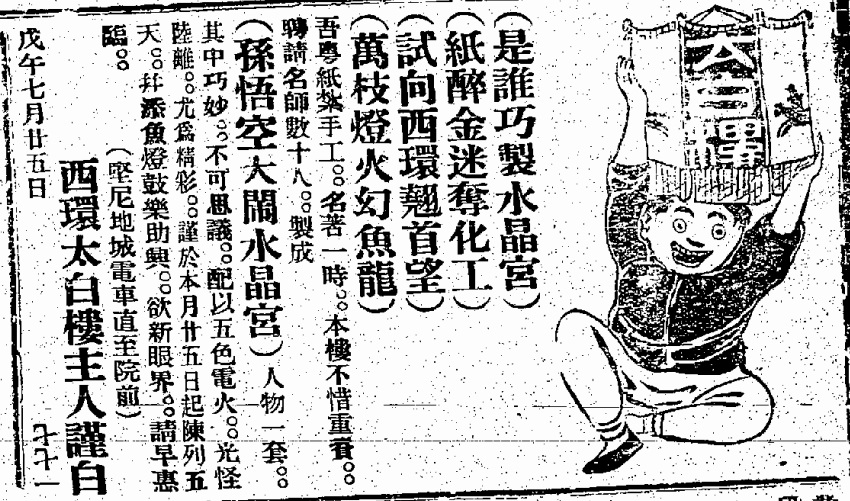 太白樓
（是誰巧製水晶宮）
（紙醉金迷奪化工）
（試向西環翹首望）
（萬枝燈火幻魚龍）
吾粵紙紮手工。。名著一時。。本樓不惜重資。。
聘請名師數十人。。製成
（孫悟空大鬧水晶宮）人物一套。。
其中巧妙。。不可思議。。配以五色電火。。光怪
陸離。。尤爲精彩。。謹於本月廿五日起陳列五
天。。并添魚燈鼓樂助興。。欲新眼界。。請早惠
臨。。
（堅尼地城電車直至院前）
西環太白樓主人謹白
戊午七月廿五日